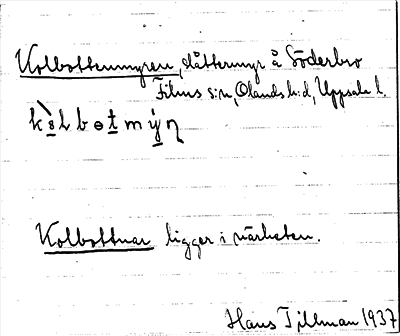 Kolbottenmyren, slåttermyr å Söderbro
Films s:n, Olands h:d, Uppsala l.
kòlbotmýn
Kolbottnar ligger i närheten.
Hans Tillman 1937